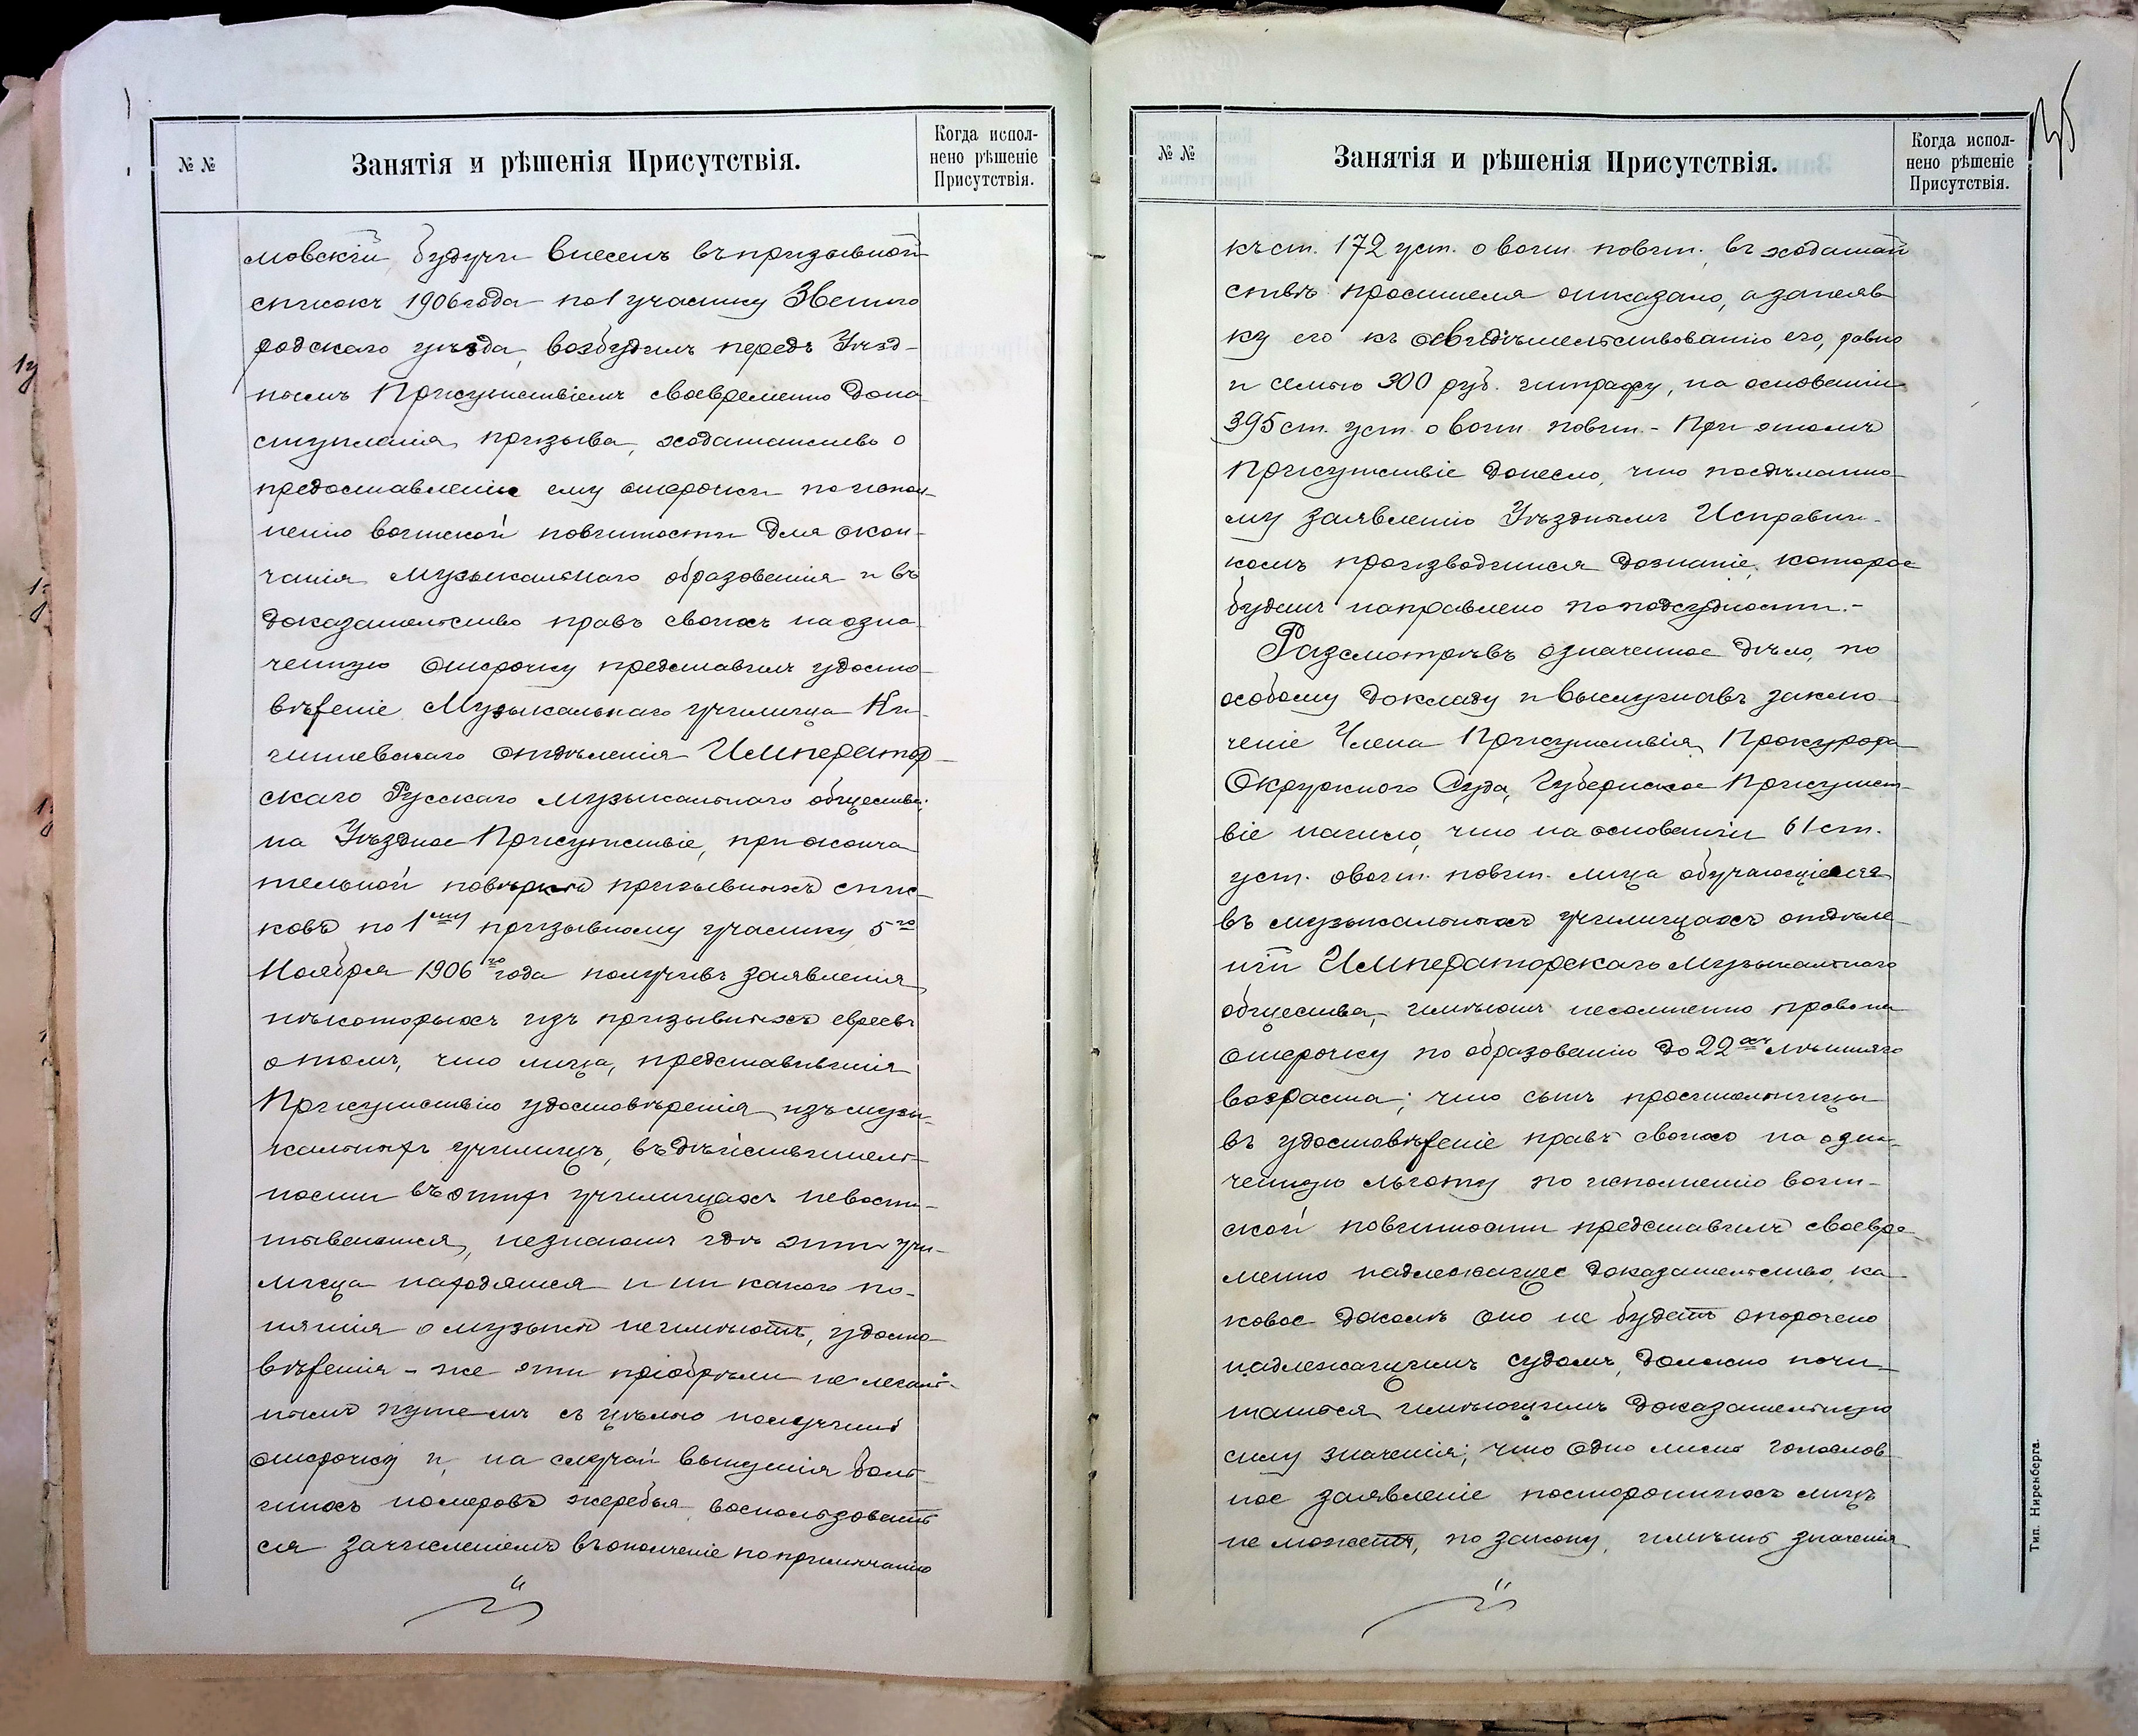 № №
Занятія и рѣшенія Присутствія.
Когда испол-
нено рѣшеніе
Присутствія.
мовскій, будучи внесенъ въ призывной
списокъ 1906 года по 1 участку Звениго
родскаго уѣзда, возбудилъ передъ Уѣзд-
нымъ Присутствіемъ своевременно до на
ступленія призыва, ходатайство о
предоставленіи ему отсрочки по испол-
ненію воинской повинности для окон-
чанія музыкальнаго образованія и въ
доказательство правъ своихъ на озна-
ченную отсрочку представилъ удосто-
вѣреніе Музыкальнаго училища Ки-
шиневскаго отдѣленія Император-
скаго Русскаго музыкальнаго общества;
на Уѣздное Присутствіе, при оконча
тельной повѣркѣ призывныхъ спис-
ковъ по 1му призывному участку 5го
Ноября 1906го года получивъ заявленія
нѣкоторыхъ изъ призывныхъ евреевъ
о томъ, что лица, представившія
Присутствію удостовѣренія изъ музы-
кальныхъ училищъ, въ дѣйствитель-
ности въ этихъ училищахъ не воспи-
тываются, не знаютъ гдѣ эти учи-
лища находятся и ни какого по-
нятія о музыкѣ не имѣютъ, удосто-
вѣренія - же эти пріобрѣли не легаль-
нымъ путемъ съ цѣлью получить
отсрочку и, на случай вынутія боль-
шихъ номеровъ жеребья воспользовать
ся зачисленіемъ въ ополченіе по примѣчанію
№ №
Занятія и рѣшенія Присутствія.
Когда испол-
нено рѣшеніе
Присутствія.
къ ст. 172 уст. о воин. повин., въ ходатай
ствѣ просителя отказало, а за неяв
ку его къ освидѣтельствованію его, равно
и семью 300 руб. штрафу, на основаніи
395 ст. уст. о воин. повин. - При этомъ
Присутствіе донесло, что по сдѣланно
му заявленію Уѣзднымъ Исправни-
комъ производится дознаніе, которое
будетъ направлено по подсудности. -
Разсмотрѣвъ означенное дѣло, по
особому докладу и выслушавъ заклю-
ченіе Члена Присутствія, Прокурора
Окружного Суда, Губернское Присутст-
віе нашло, что на основаніи 61 ст.
уст. о воин. повин. лица обучающіеся
въ музыкальныхъ училищахъ отдѣле-
ній Императорскаго музыкальнаго
общества, имѣютъ несомненно право на
отсрочку по образованію до 22хъ лѣтняго
возраста; что сынъ просительницы
въ удостовѣреніе правъ своихъ на озна-
ченную льготу по исполненію воин-
ской повинности представилъ своевре-
менно надлежащее доказательство, ка-
ковое доколѣ оно не будетъ опорочено
надлежащимъ судомъ, должно почи-
таться имѣющимъ доказательную
силу значенія; что одно лишь голослов
ное заявленіе постороннихъ лицъ
не можетъ, по закону, имѣть значенія
Тип. Ниренберга.